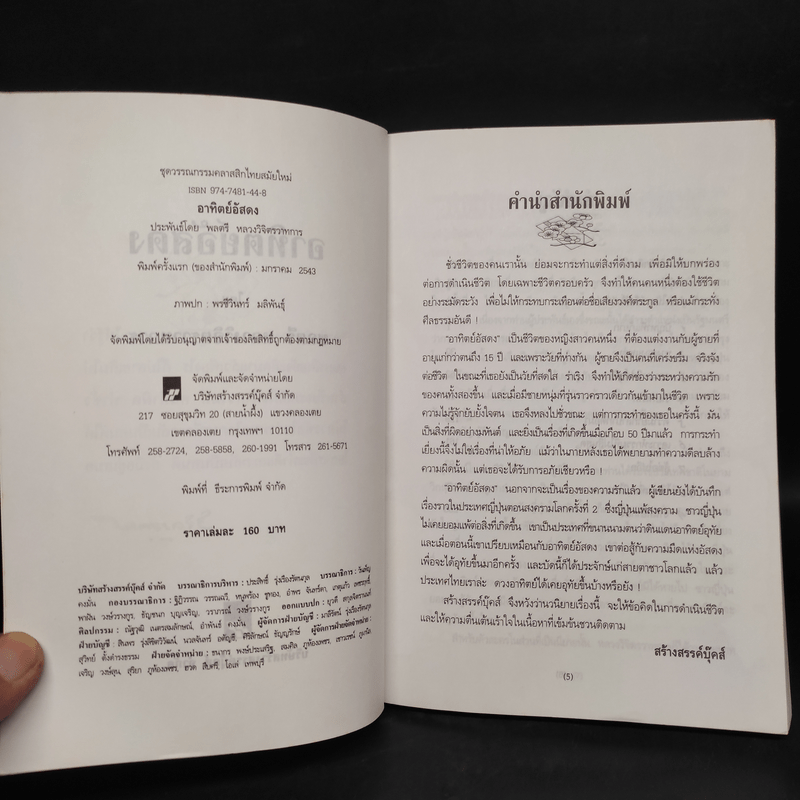 ชุดวรรณกรรมคลาสสิกไทยสมัยใหม่
ISBN 974-7481-44-8
อาทิตย์อัสดง
ประพันธ์โดย พลตรี หลวงวิจิตรวาทการ
พิมพ์ครั้งแรก (ของสำนักพิมพ์) : มกราคม 2543
ภาพปก : พรชีวินทร์ มลิพันธุ์
จัดพิมพ์โดยได้รับอนุญาตจากเจ้าของลิขสิทธิ์ถูกต้องตามกฎหมาย
จัดพิมพ์และจัดจำหน่ายโดย
บริษัทสร้างสรรค์บุ๊คส์ จำกัด
217 ซอยสุขุมวิท 20 (สายน้ำผึ้ง) แขวงคลองเตย
เขตคลองเตย กรุงเทพฯ 10110
โทรศัพท์ 258-2724, 258-5858, 260-1991 โทรสาร 261-5671
พิมพ์ที่ ธีระการพิมพ์ จำกัด
ราคาเล่มละ 160 บาท
บริษัทสร้างสรรค์บุ๊คส์ จำกัด บรรณาธิการบริหาร : ประสิทธิ์ รุ่งเรืองรัตนกุล บรรณาธิการ :
คงมั่น กองบรรณาธิการ : วรรณฉวี หนูพร้อม
พาฝัน วงษ์วรางกูร, ธัญชนก บุญเจริญ, วราภรณ์ วงษ์วรางกูร ออกแบบปก :
ศิลปกรรม : ณัฐวุฒิ เนตรจมลักษณ์, อำพันธ์ คงมั่น ผู้จัดการฝ่ายบัญชี :
ฝ่ายบัญชี : ผู้จัดการฝ่ายจัดจำหน่าย :
สุวิทย์ ตั้งดำรงธรรม ฝ่ายจัดจำหน่าย : ธนากร พงษ์ประเสริฐ,
เจริญ วงษ์สุน, สุริยา
คำนำสำนักพิมพ์
ชั่วชีวิตของคนเรานั้น ย่อมจะกระทำแต่สิ่งที่ดีงาม เพื่อมิให้บกพร่อง
ต่อการดำเนินชีวิต โดยเฉพาะชีวิตครอบครัว จึงทำให้คนคนหนึ่งต้องใช้ชีวิต
อย่างระมัดระวัง เพื่อไม่ให้กระทบกระเทือนต่อชื่อเสียงวงศ์ตระกูล หรือแม้กระทั่ง
ศีลธรรมอันดี !
"อาทิตย์อัสดง" เป็นชีวิตของหญิงสาวคนหนึ่ง ที่ต้องแต่งงานกับผู้ชายที่
อายุแก่กว่าตนถึง 15 ปี และเพราะวัยที่ห่างกัน ผู้ชายจึงเป็นคนที่เคร่งขรึม จริงจัง
ต่อชีวิต ในขณะที่เธอยังเป็นวัยที่สดใส ร่าเริง จึงทำให้เกิดช่องว่างระหว่างความรัก
ของคนทั้งสองขึ้น และเมื่อมีชายหนุ่มที่รุ่นราวคราวเดียวกันเข้ามาในชีวิต เพราะ
ความไม่รู้จักยับยั้งใจตน เธอจึงหลงไปชั่วขณะ แต่การกระทำของเธอในครั้งนี้ มัน
เป็นสิ่งที่ผิดอย่างมหันต์ และยิ่งเป็นเรื่องที่เกิดขึ้นเมื่อเกือบ 50 ปีมาแล้ว การกระทำ
เยี่ยงนี้จึงไม่ใช่เรื่องที่น่าให้อภัย แม้ว่าในภายหลังเธอได้พยายามทำความดีลบล้าง
ความผิดนั้น แต่เธอจะได้รับการอภัยเชียวหรือ !
"อาทิตย์อัสดง" นอกจากจะเป็นเรื่องของความรักแล้ว ผู้เขียนยังได้บันทึก
เรื่องราวในประเทศญี่ปุ่นตอนสงครามโลกครั้งที่ 2 ซึ่งญี่ปุ่นแพ้สงคราม ชาวญี่ปุ่น
ไม่เคยยอมแพ้ต่อสิ่งที่เกิดขึ้น เขาเป็นประเทศที่ขนานนามตนว่าดินแดนอาทิตย์อุทัย
และเมื่อตอนนี้เขาเปรียบเหมือนกับอาทิตย์อัสดง เขาต่อสู้กับความมืดแห่งอัสดง
เพื่อจะได้อุทัยขึ้นมาอีกครั้ง และบัดนี้ก็ได้ประจักษ์แก่สายตาชาวโลกแล้ว แล้ว
ประเทศไทยเราล่ะ ดวงอาทิตย์ได้เคยอุทัยขึ้นบ้างหรือยัง !
สร้างสรรค์บุ๊คส์ จึงหวังว่านวนิยายเรื่องนี้ จะให้ข้อคิดในการดำเนินชีวิต
และให้ความตื่นเต้นเร้าใจในเนื้อหาที่เข้มข้นชวนติดตาม
สร้างสรรค์บุ๊คส์
(5)